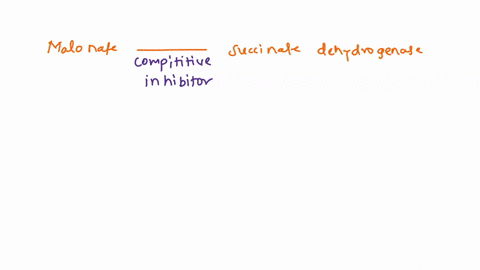 Malonate ______ succinate dehydrogenase
compititive
inhibitor